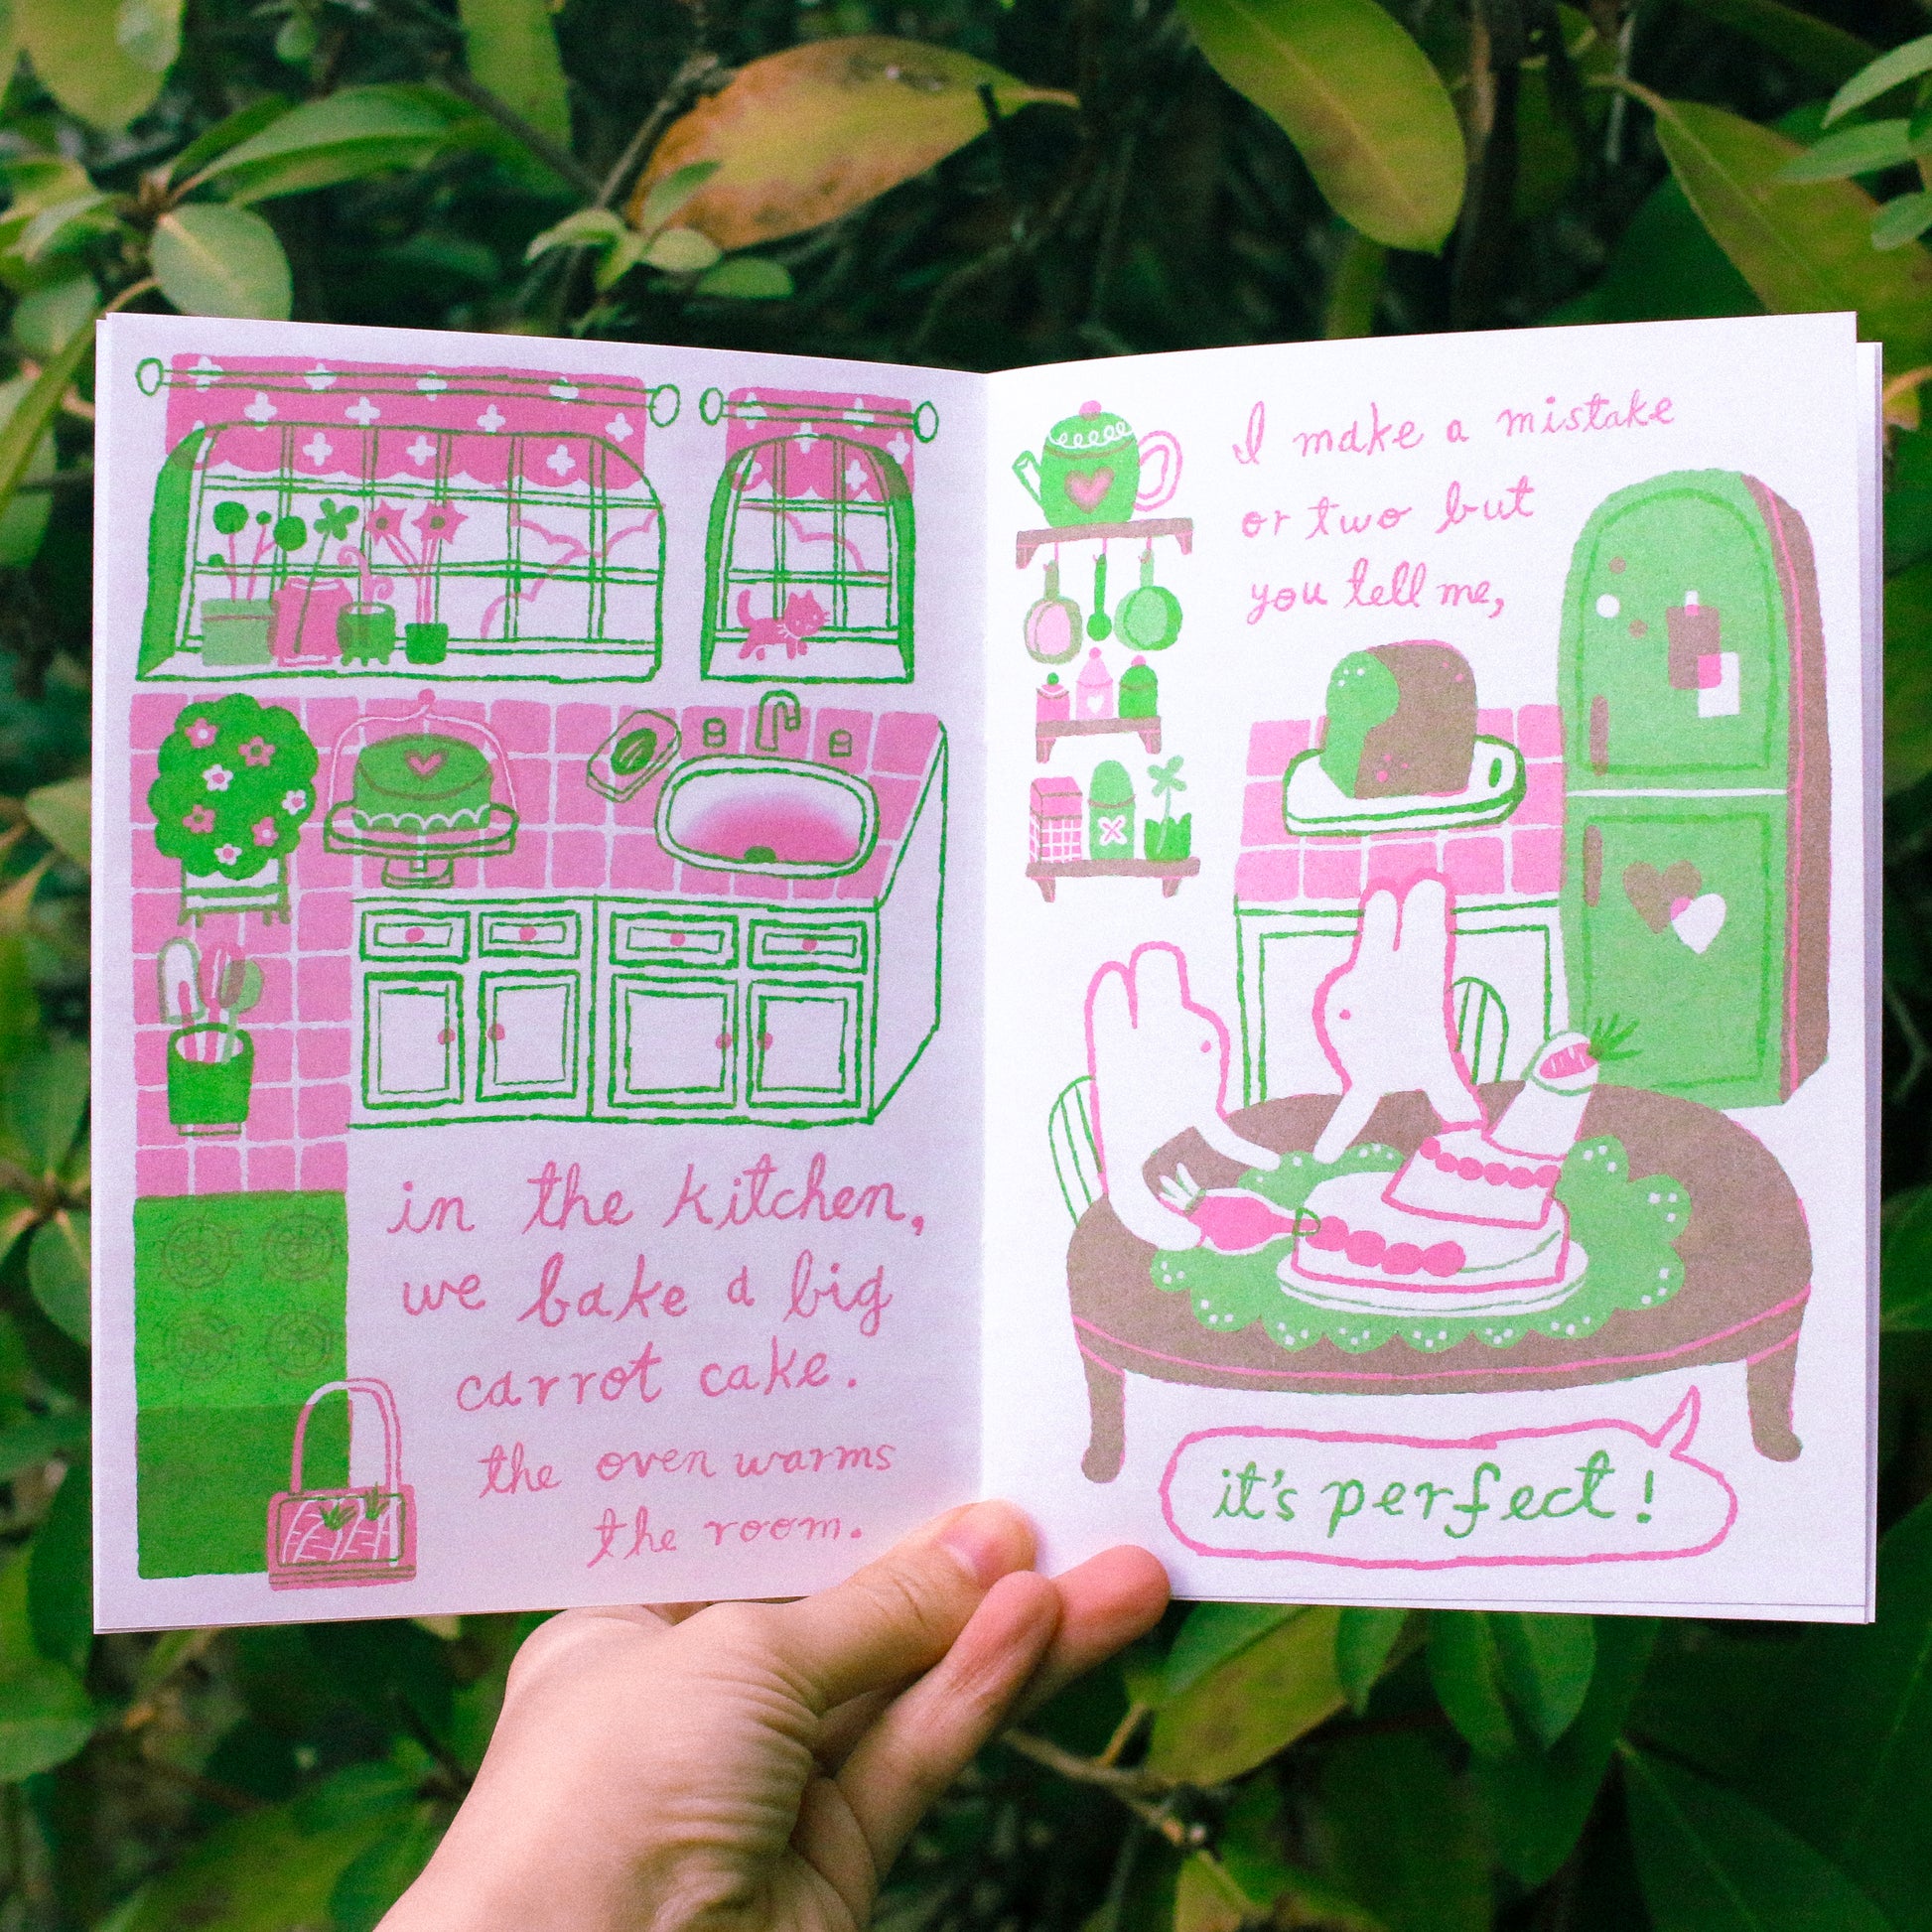 in the kitchen,
we bake a big
carrot cake.
the oven warms
the room.
I make a mistake
or two but
you tell me,
it's perfect!